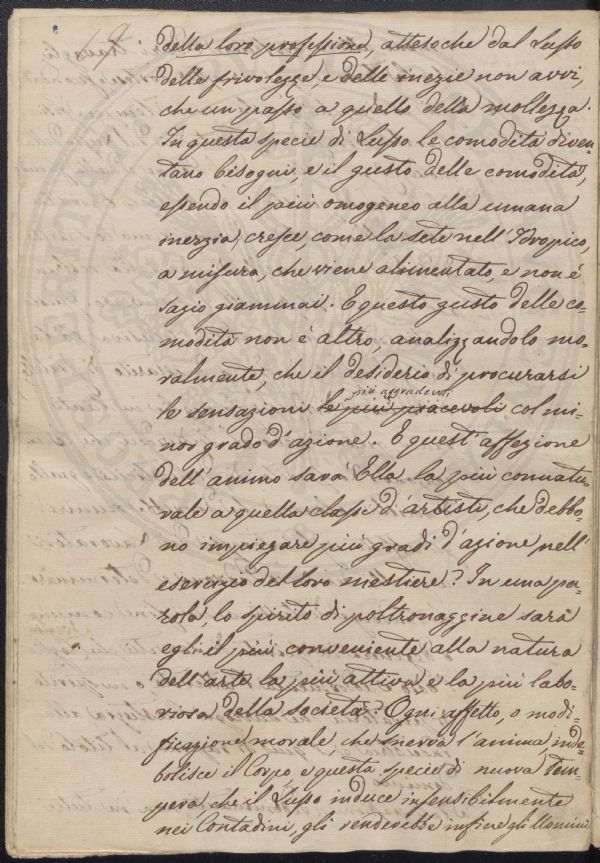 della loro professione, attesoche dal Lusso
delle frivolezze, e delle inezie non avvi,
che un passo a quello della mollezza.
In questa specie di Lusso le comodità diven-
tano bisogni, e il gusto delle comodità,
essendo il più omogeneo alla umana
inerzia, cresce, come la sete nell'Idropico,
a misura, che viene alimentato, e non è
sazio giammai. E questo gusto delle co-
modità non è altro, analizzandolo mo-
ralmente, che il desiderio di procurarsi
più aggradevoli
le sensazioni le più piacevoli col mi-
nor grado d'azione. E quest'affezione
dell'animo sarà Ella la più connatu-
rale a quella classe d'artisti, che debbo-
no impiegare più gradi d'azione, nell'
esercizio del loro mestiere? In una pa-
rola, lo spirito di poltronaggine sarà
egli il più conveniente alla natura
dell'arte la più attiva e la più labo-
riosa della società? Ogni affetto, o modi-
ficazione morale, che snerva l'anima, inde-
bolisce il Corpo, e questa specie di nuova tem-
pera, che il Lusso induce insensibilmente
nei Contadini, gli renderebbe infine gli Uomini